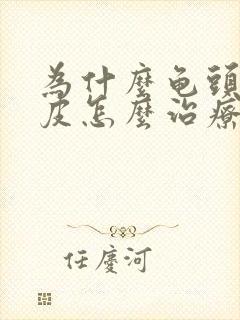 為什麼龟頭
皮怎麼治療
任慶河